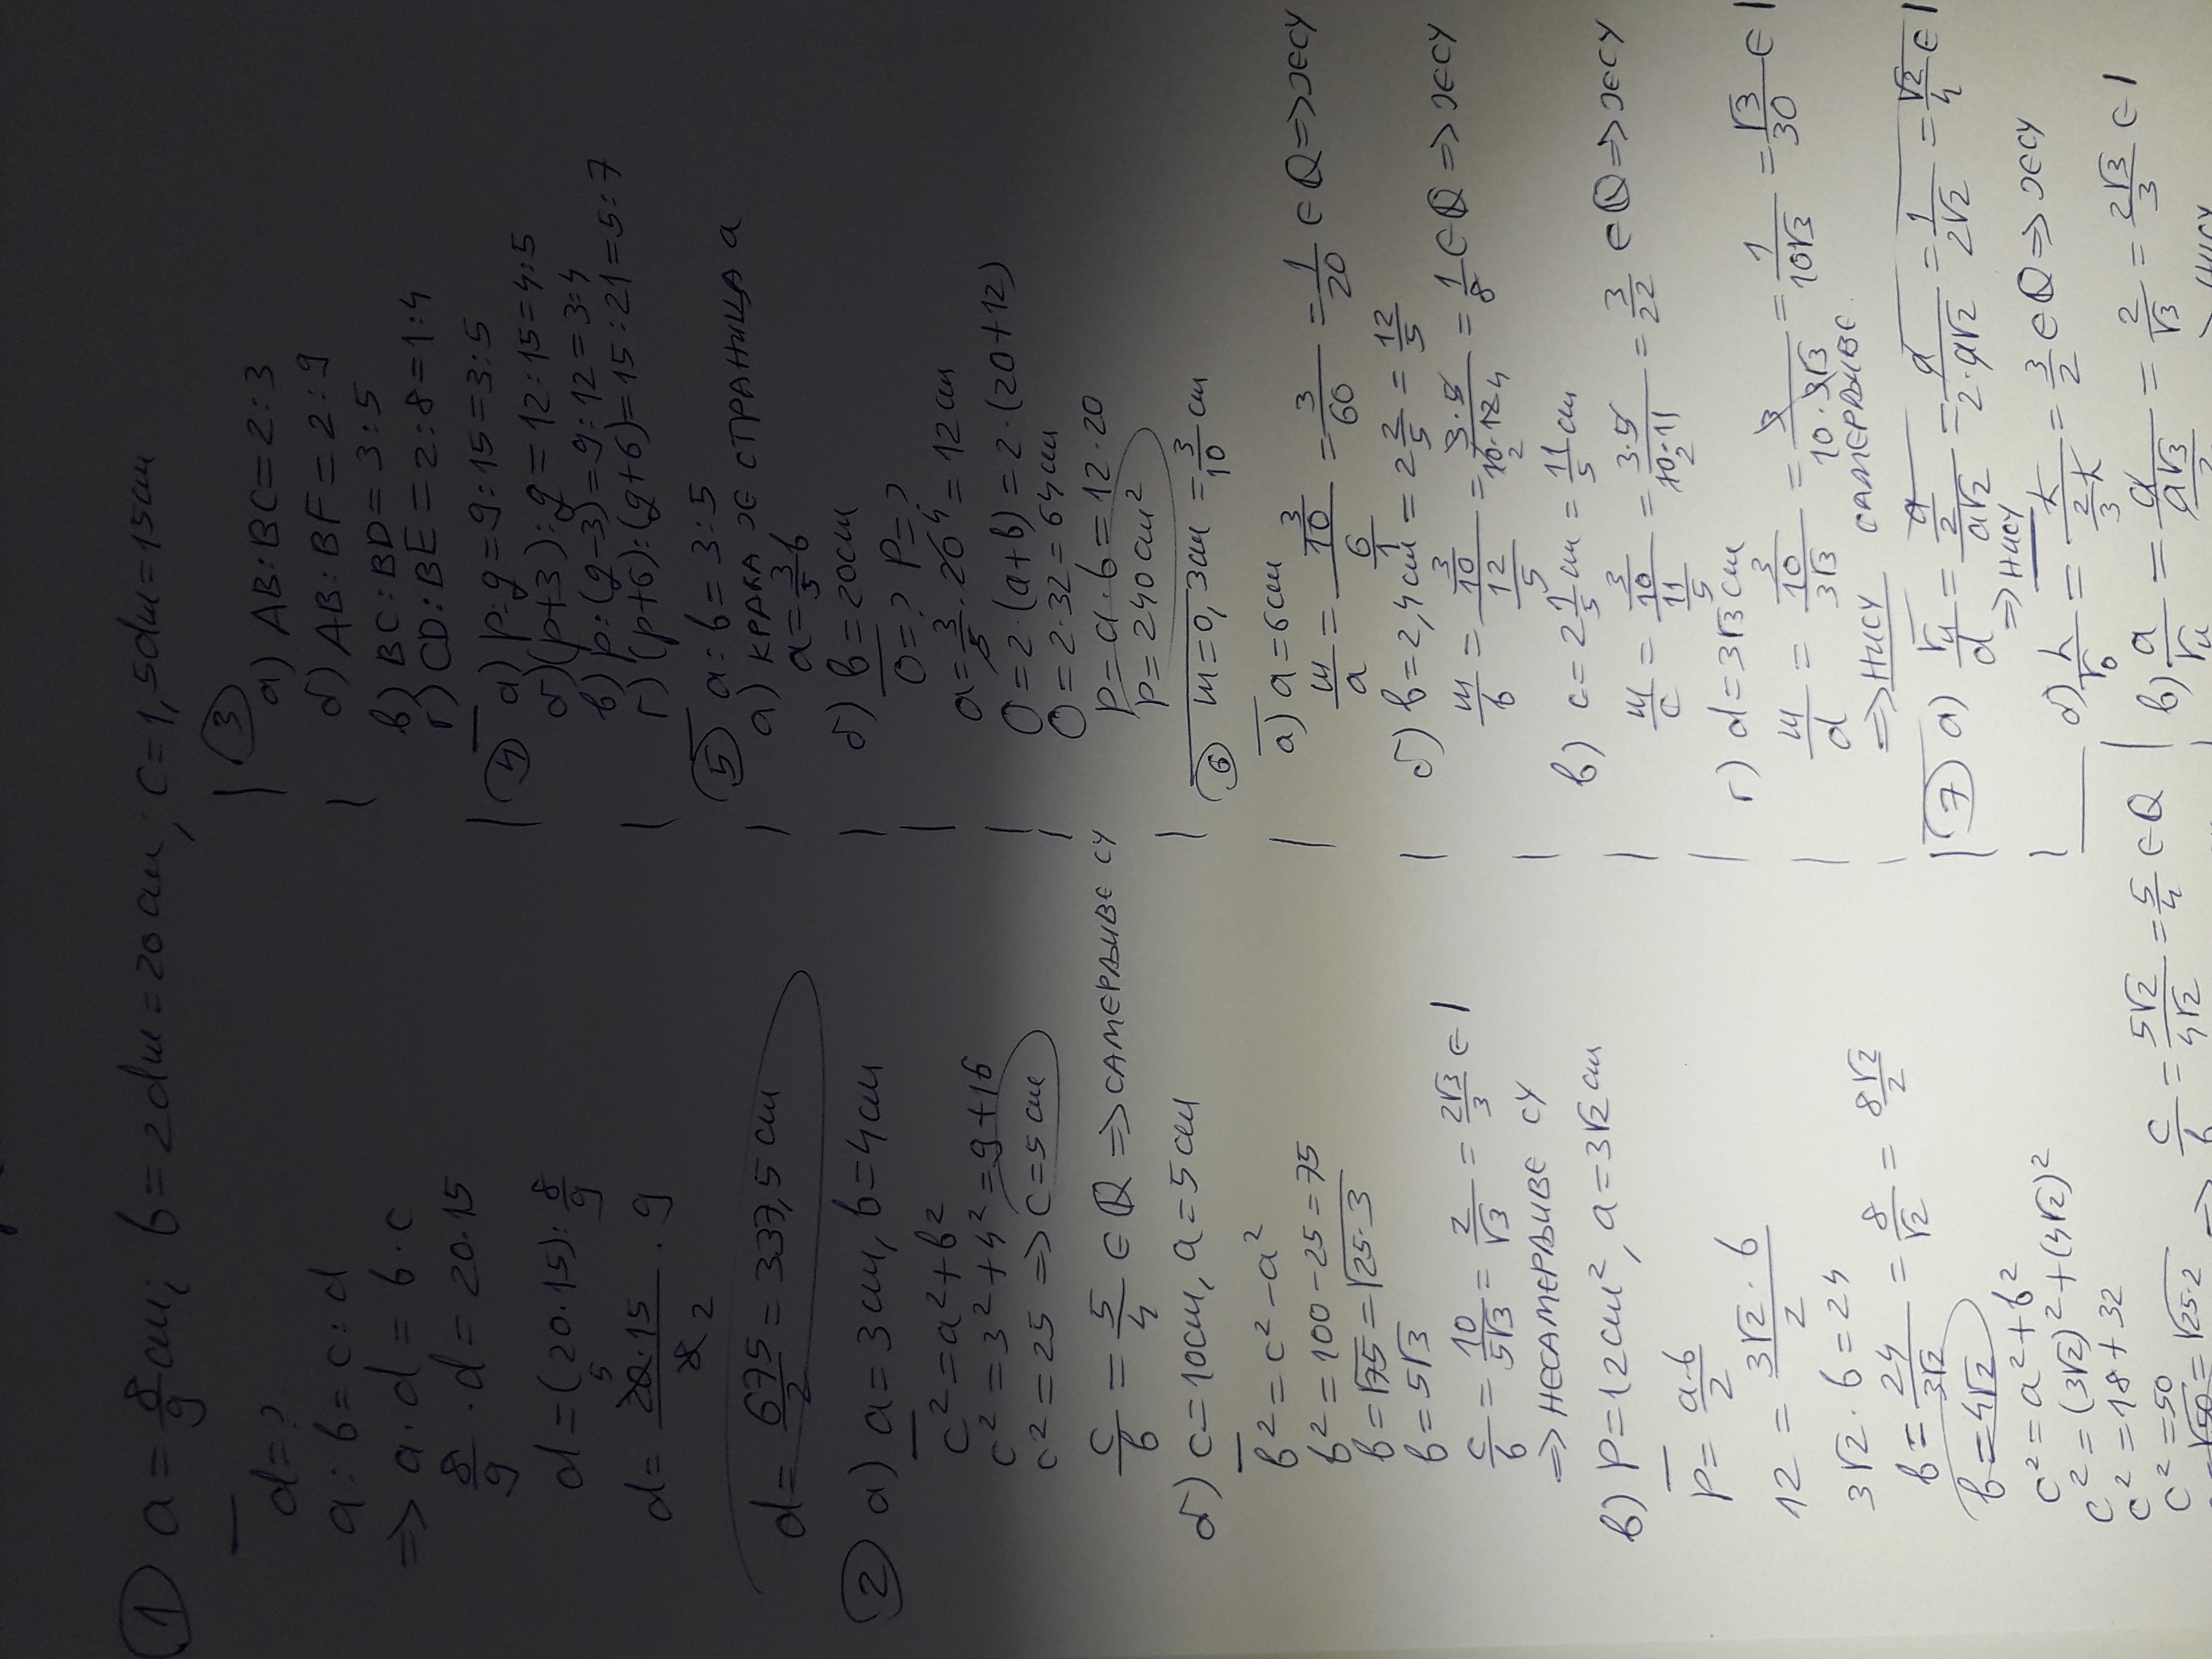 ① a = 8/9 cm; b = 2dm = 20cm; c = 1,5dm = 15cm
d = ?
a : b = c : d
⇒ a · d = b · c
8/9 · d = 20 · 15
d = (20 · 15) : 8/9
d = 20 · 15 / 8 · 9
5
2
d = 675/2 = 337,5 cm
② а) a = 3cm, b = 4cm
c² = a² + b²
c² = 3² + 4² = 9 + 16
c² = 25 ⇒ c = 5cm
c/b = 5/4 ∈ Q ⇒ САМЕРЉИВЕ СУ
б) c = 10cm, a = 5cm
b² = c² - a²
b² = 100 - 25 = 75
b = √75 = √25·3
b = 5√3
c/b = 10/5√3 = 2/√3 = 2√3/3 ∈ I
⇒ НЕСАМЕРЉИВЕ СУ
в) P = 12cm², a = 3√2 cm
P = a·b/2
12 = 3√2 · b/2
3√2 · b = 24
b = 24/3√2 = 8/√2 = 8√2/2
b = 4√2
c² = a² + b²
c² = (3√2)² + (4√2)²
c² = 18 + 32
c² = 50
√50 = √25·2
c/b = 5√2/4√2 = 5/4 ∈ Q
③
а) AB : BC = 2 : 3
б) AB : BF = 2 : 9
в) BC : BD = 3 : 5
г) CD : BE = 2 : 8 = 1 : 4
④ а) p : g = 9 : 15 = 3 : 5
б) (p+3) : g = 12 : 15 = 4 : 5
в) p : (g-3) = 9 : 12 = 3 : 4
г) (p+6) : (g+6) = 15 : 21 = 5 : 7
⑤ a : b = 3 : 5
а) КРАЋА ЈЕ СТРАНИЦА a
a = 3/5 b
б) b = 20cm
O = ? P = ?
a = 3/5 · 20 4 = 12 cm
O = 2 · (a+b) = 2 · (20+12)
O = 2 · 32 = 64cm
P = a · b = 12 · 20
P = 240cm²
⑥ m = 0,3cm = 3/10 cm
а) a = 6cm
m/a = 3/10 / 6/1 = 3/60 = 1/20 ∈ Q ⇒ ЈЕСУ
б) b = 2,4cm = 2 2/5 = 12/5
m/b = 3/10 / 12/5 = 3·5/10·12 = 1/8 ∈ Q ⇒ ЈЕСУ
2 4
в) c = 2 1/5 cm = 11/5 cm
m/c = 3/10 / 11/5 = 3·5/10·11 = 3/22 ∈ Q ⇒ ЈЕСУ
2
г) d = 3√3 cm
m/d = 3/10 / 3√3 = 3/10·3√3 = 1/10√3 = √3/30 ∈ I
⇒ НИСУ САМЕРЉИВЕ.
⑦ а) ru/d = a/2 / a√2 = a/2·a√2 = 1/2√2 = √2/4 ∈ I
⇒ НИСУ
б) h/ro = h / 2/3 h = 3/2 ∈ Q ⇒ ЈЕСУ
в) a/ru = a / a√3/2 = 2/√3 = 2√3/3 ∈ I